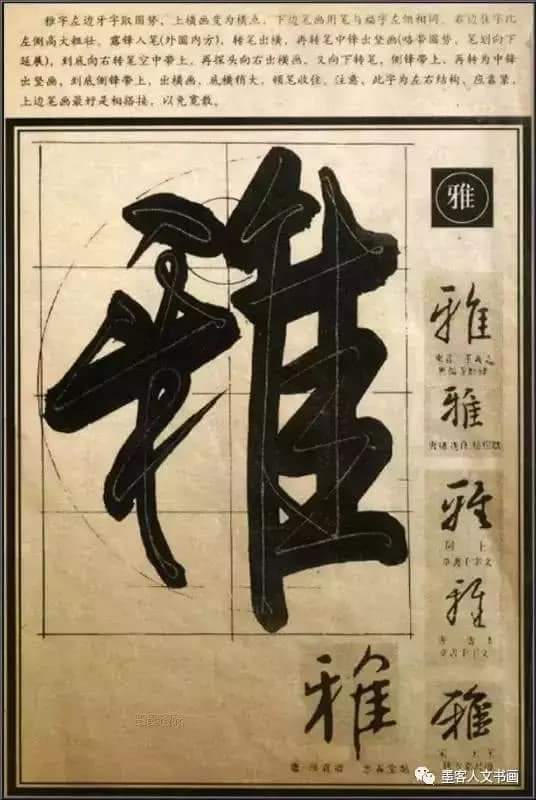 雅字左边牙字取圆势，上横画变为横点，下边笔画用笔与福字左侧相同。右边佳字比
左侧高大粗壮。露锋入笔(外圆内方)，转笔出横，再转笔中锋出竖画(略带圆势，笔划向下
延展)，到底向右转笔空中带上，再探头向右出横画，又向下转笔，侧锋带上，再转为中锋
出竖画，到底侧锋带上，出横画，底横稍大，顿笔收住。注意，此字为左右结构，应靠紧，
上边笔画最好是相搭接，以免宽散。
雅
雅
雅
雅
雅
同上
草书千字文
雅
雅
雅
雅
墨客人文书画